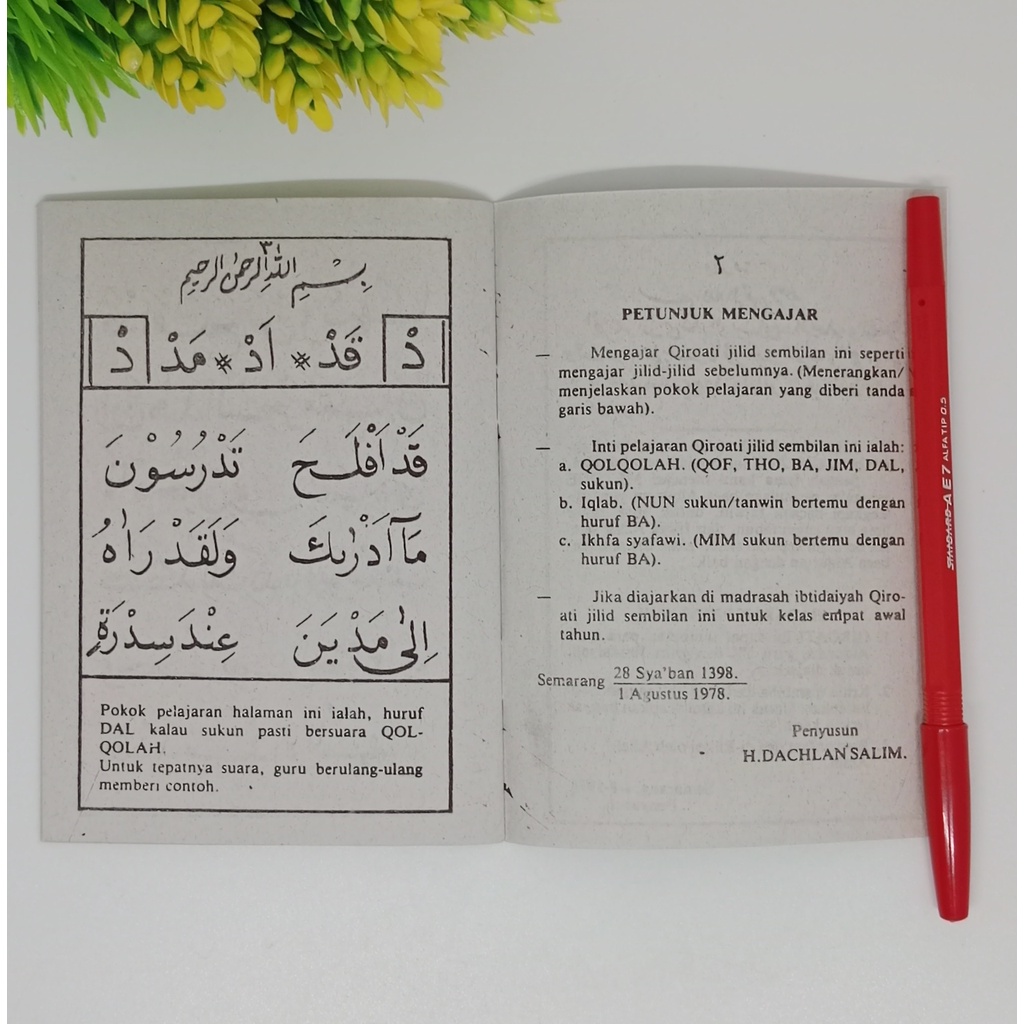 ٢
PETUNJUK MENGAJAR
— Mengajar Qiroati jilid sembilan ini seperti
mengajar jilid-jilid sebelumnya. (Menerangkan/
menjelaskan pokok pelajaran yang diberi tanda
garis bawah).
— Inti pelajaran Qiroati jilid sembilan ini ialah:
a. QOLQOLAH. (QOF, THO, BA, JIM, DAL,
sukun).
b. Iqlab. (NUN sukun/tanwin bertemu dengan
huruf BA).
c. Ikhfa syafawi. (MIM sukun bertemu dengan
huruf BA).
— Jika diajarkan di madrasah ibtidaiyah Qiro-
ati jilid sembilan ini untuk kelas empat awal
tahun.
Semarang 28 Sya'ban 1398.
1 Agustus 1978.
Penyusun
H.DACHLAN SALIM.
٣
بِسْمِ اللهِ الرَّحْمٰنِ الرَّحِيْمِ
دْ قَدْ * اَدْ * مَدْ دْ
قَدْ اَفْلَحَ تَدْرُسُوْنَ
مَآ اَدْرٰىكَ وَلَقَدْ رَاٰهُ
اِلٰى مَدْيَنَ عِنْدَ سِدْرَةِ
Pokok pelajaran halaman ini ialah, huruf
DAL kalau sukun pasti bersuara QOL-
QOLAH.
Untuk tepatnya suara, guru berulang-ulang
memberi contoh.
STANDARD AE7 ALFATIP 0.5